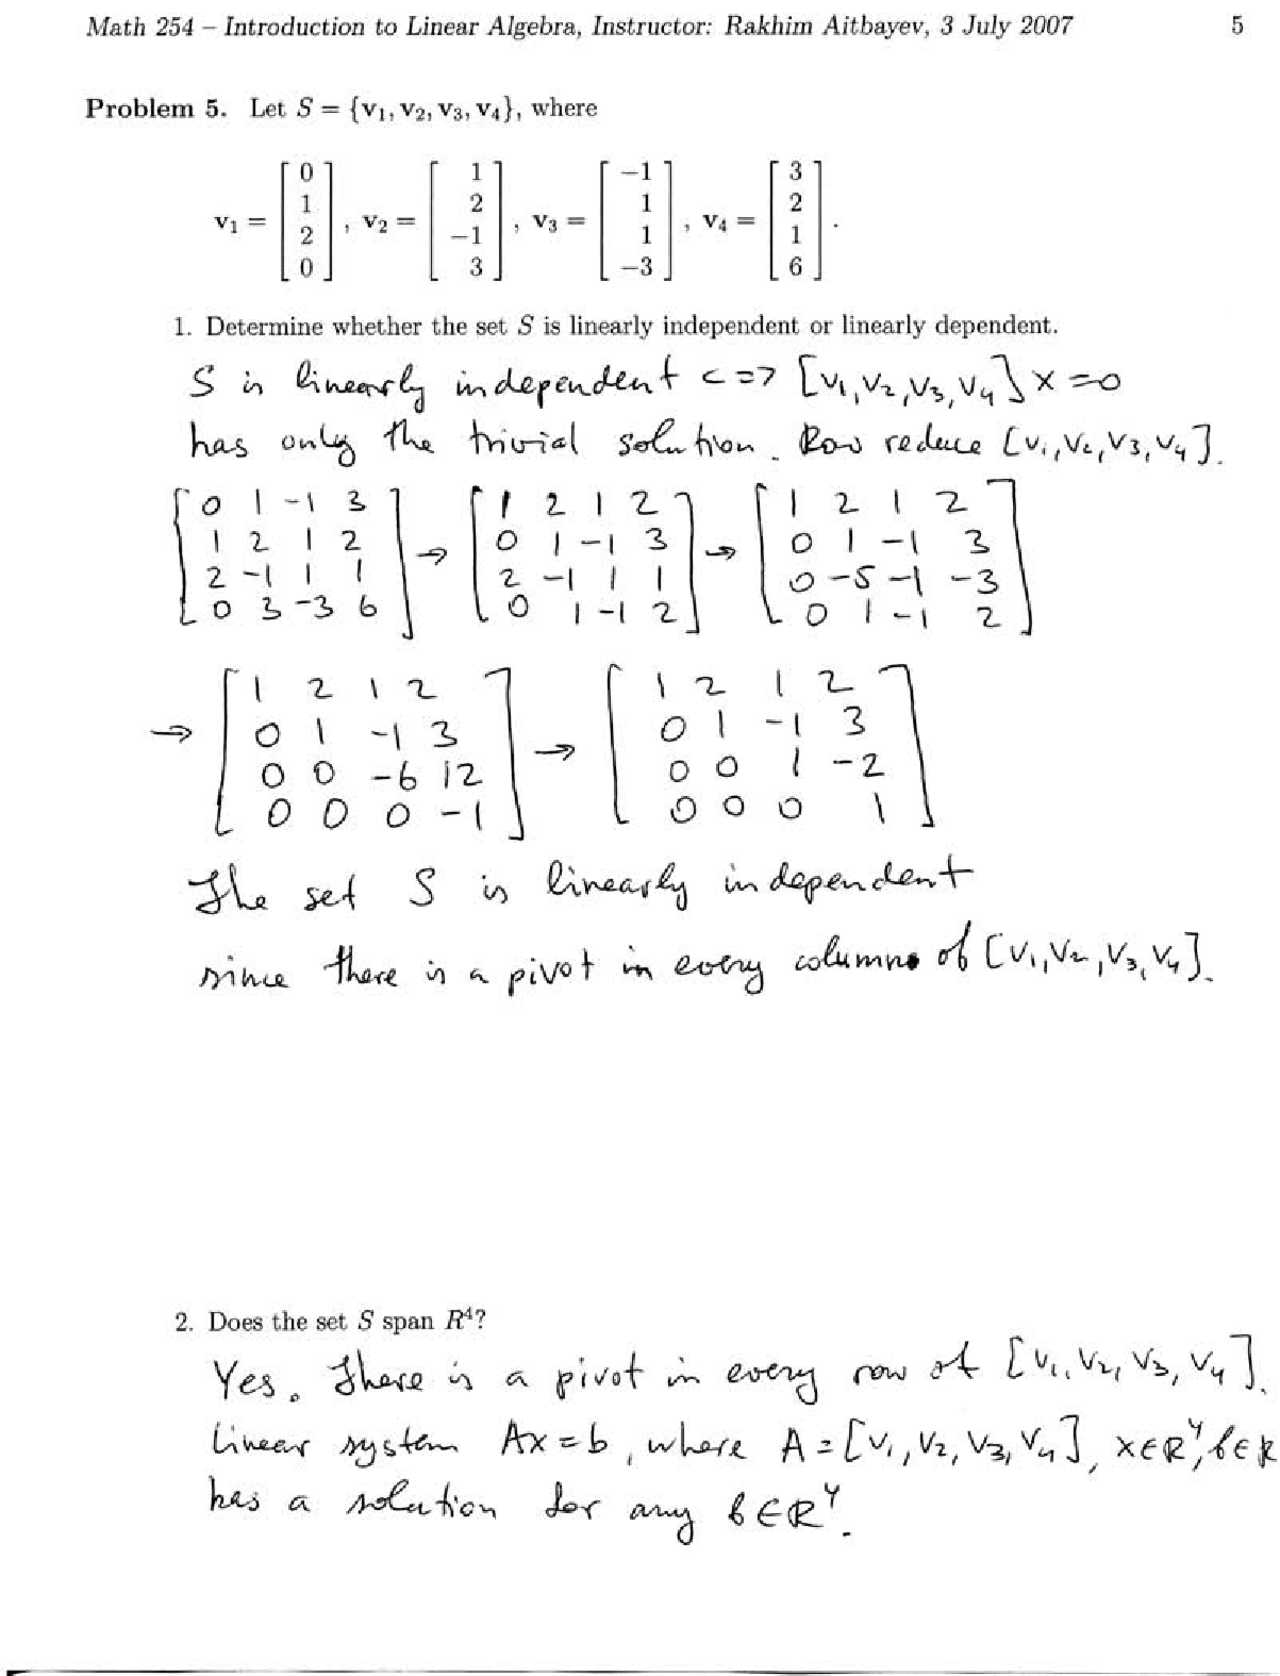 Math 254 – Introduction to Linear Algebra, Instructor: Rakhim Aitbayev, 3 July 2007 5
Problem 5. Let S = {v₁, v₂, v₃, v₄}, where
v₁ = [0 1 2 0], v₂ = [1 2 −1 3], v₃ = [−1 1 1 −3], v₄ = [3 2 1 6].
1. Determine whether the set S is linearly independent or linearly dependent.
S is linearly independent <=> [v₁,v₂,v₃,v₄]x=0
has only the trivial solution. Row reduce [v₁,v₂,v₃,v₄].
[0 1 -1 3 → [1 2 1 2 → [1 2 1 2
1 2 1 2 0 1 -1 3 0 1 -1 3
2 -1 1 1 2 -1 1 1 0 -5 -1 -3
0 3 -3 6] 0 1 -1 2] 0 1 -1 2]
→ [1 2 1 2 → [1 2 1 2
0 1 -1 3 0 1 -1 3
0 0 -6 12 0 0 1 -2
0 0 0 -1] 0 0 0 1]
The set S is linearly independent
since there is a pivot in every column of [v₁,v₂,v₃,v₄].
2. Does the set S span R⁴?
Yes. There is a pivot in every row of [v₁,v₂,v₃,v₄].
Linear system Ax=b, where A=[v₁,v₂,v₃,v₄], x∈R⁴, b∈R
has a solution for any b∈R⁴.